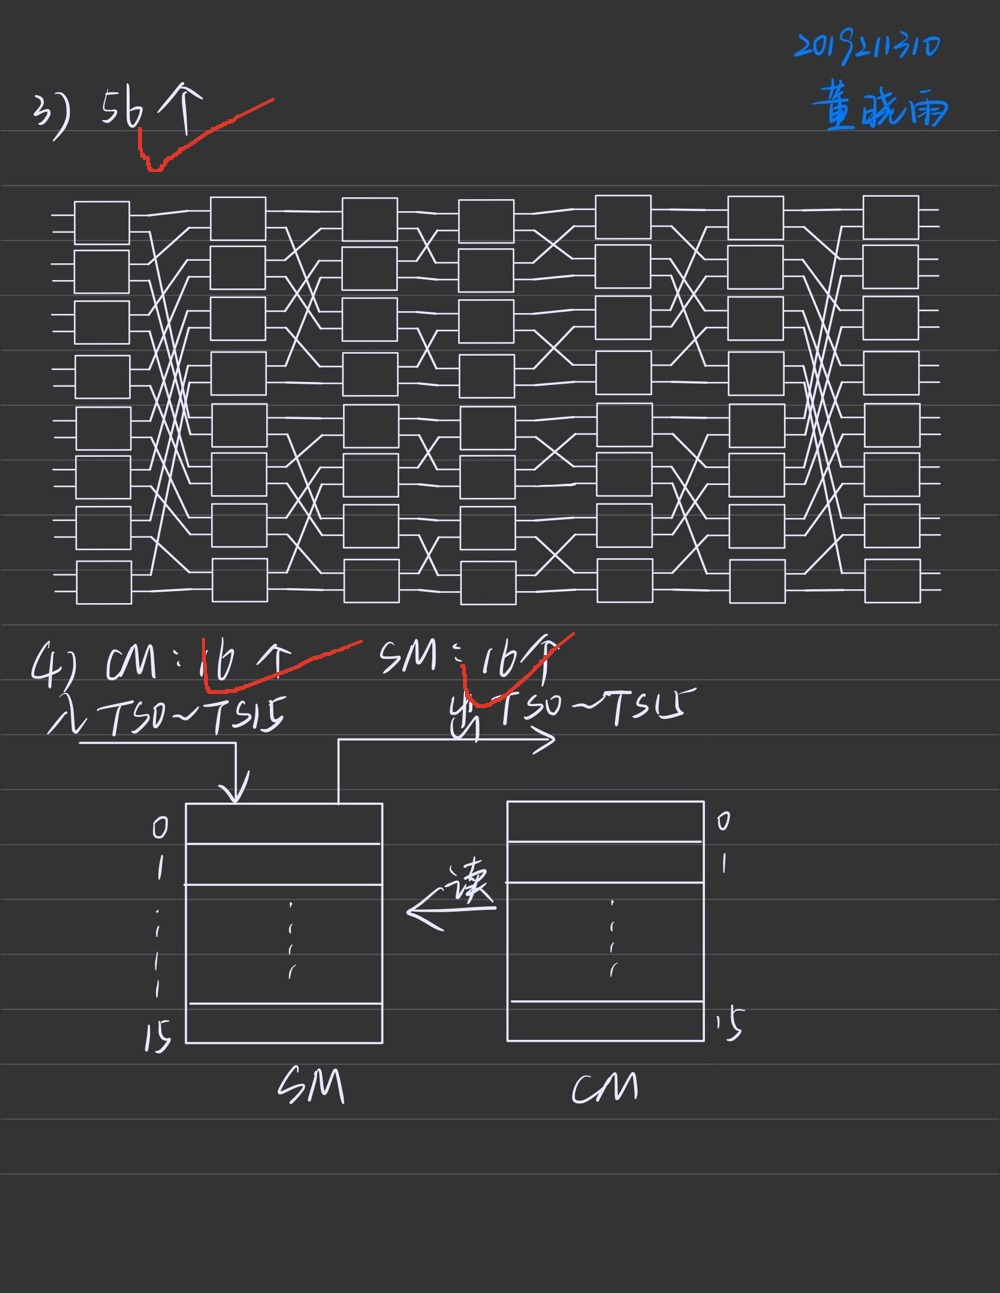 2019211310
董晓雨
3) 56个
4) CM：16个 SM：16个
入 TS0~TS15 出 TS0~TS15
0 0
1 读 1
15 15
SM CM